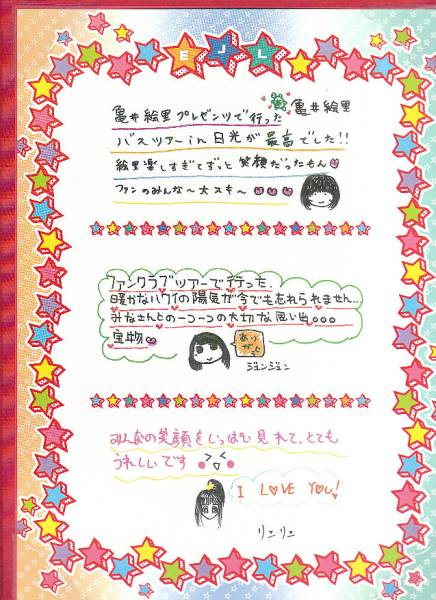 EJL
亀井絵里プレゼンツで行った 亀井絵里
バスツアーin日光が最高でした!!
絵里楽しすぎてずっと笑顔だったもん
ファンのみんな〜大スキ〜
ファンクラブツアーで行った、
暖かなハワイの陽気が今でも忘れられません…
みなさんとの一つ一つの大切な思い出。。。
宝物
ありがとう
ジュンジュン
みんなの笑顔をいっぱい見れて、とても
うれしいです
I LOVE YOU!
リンリン